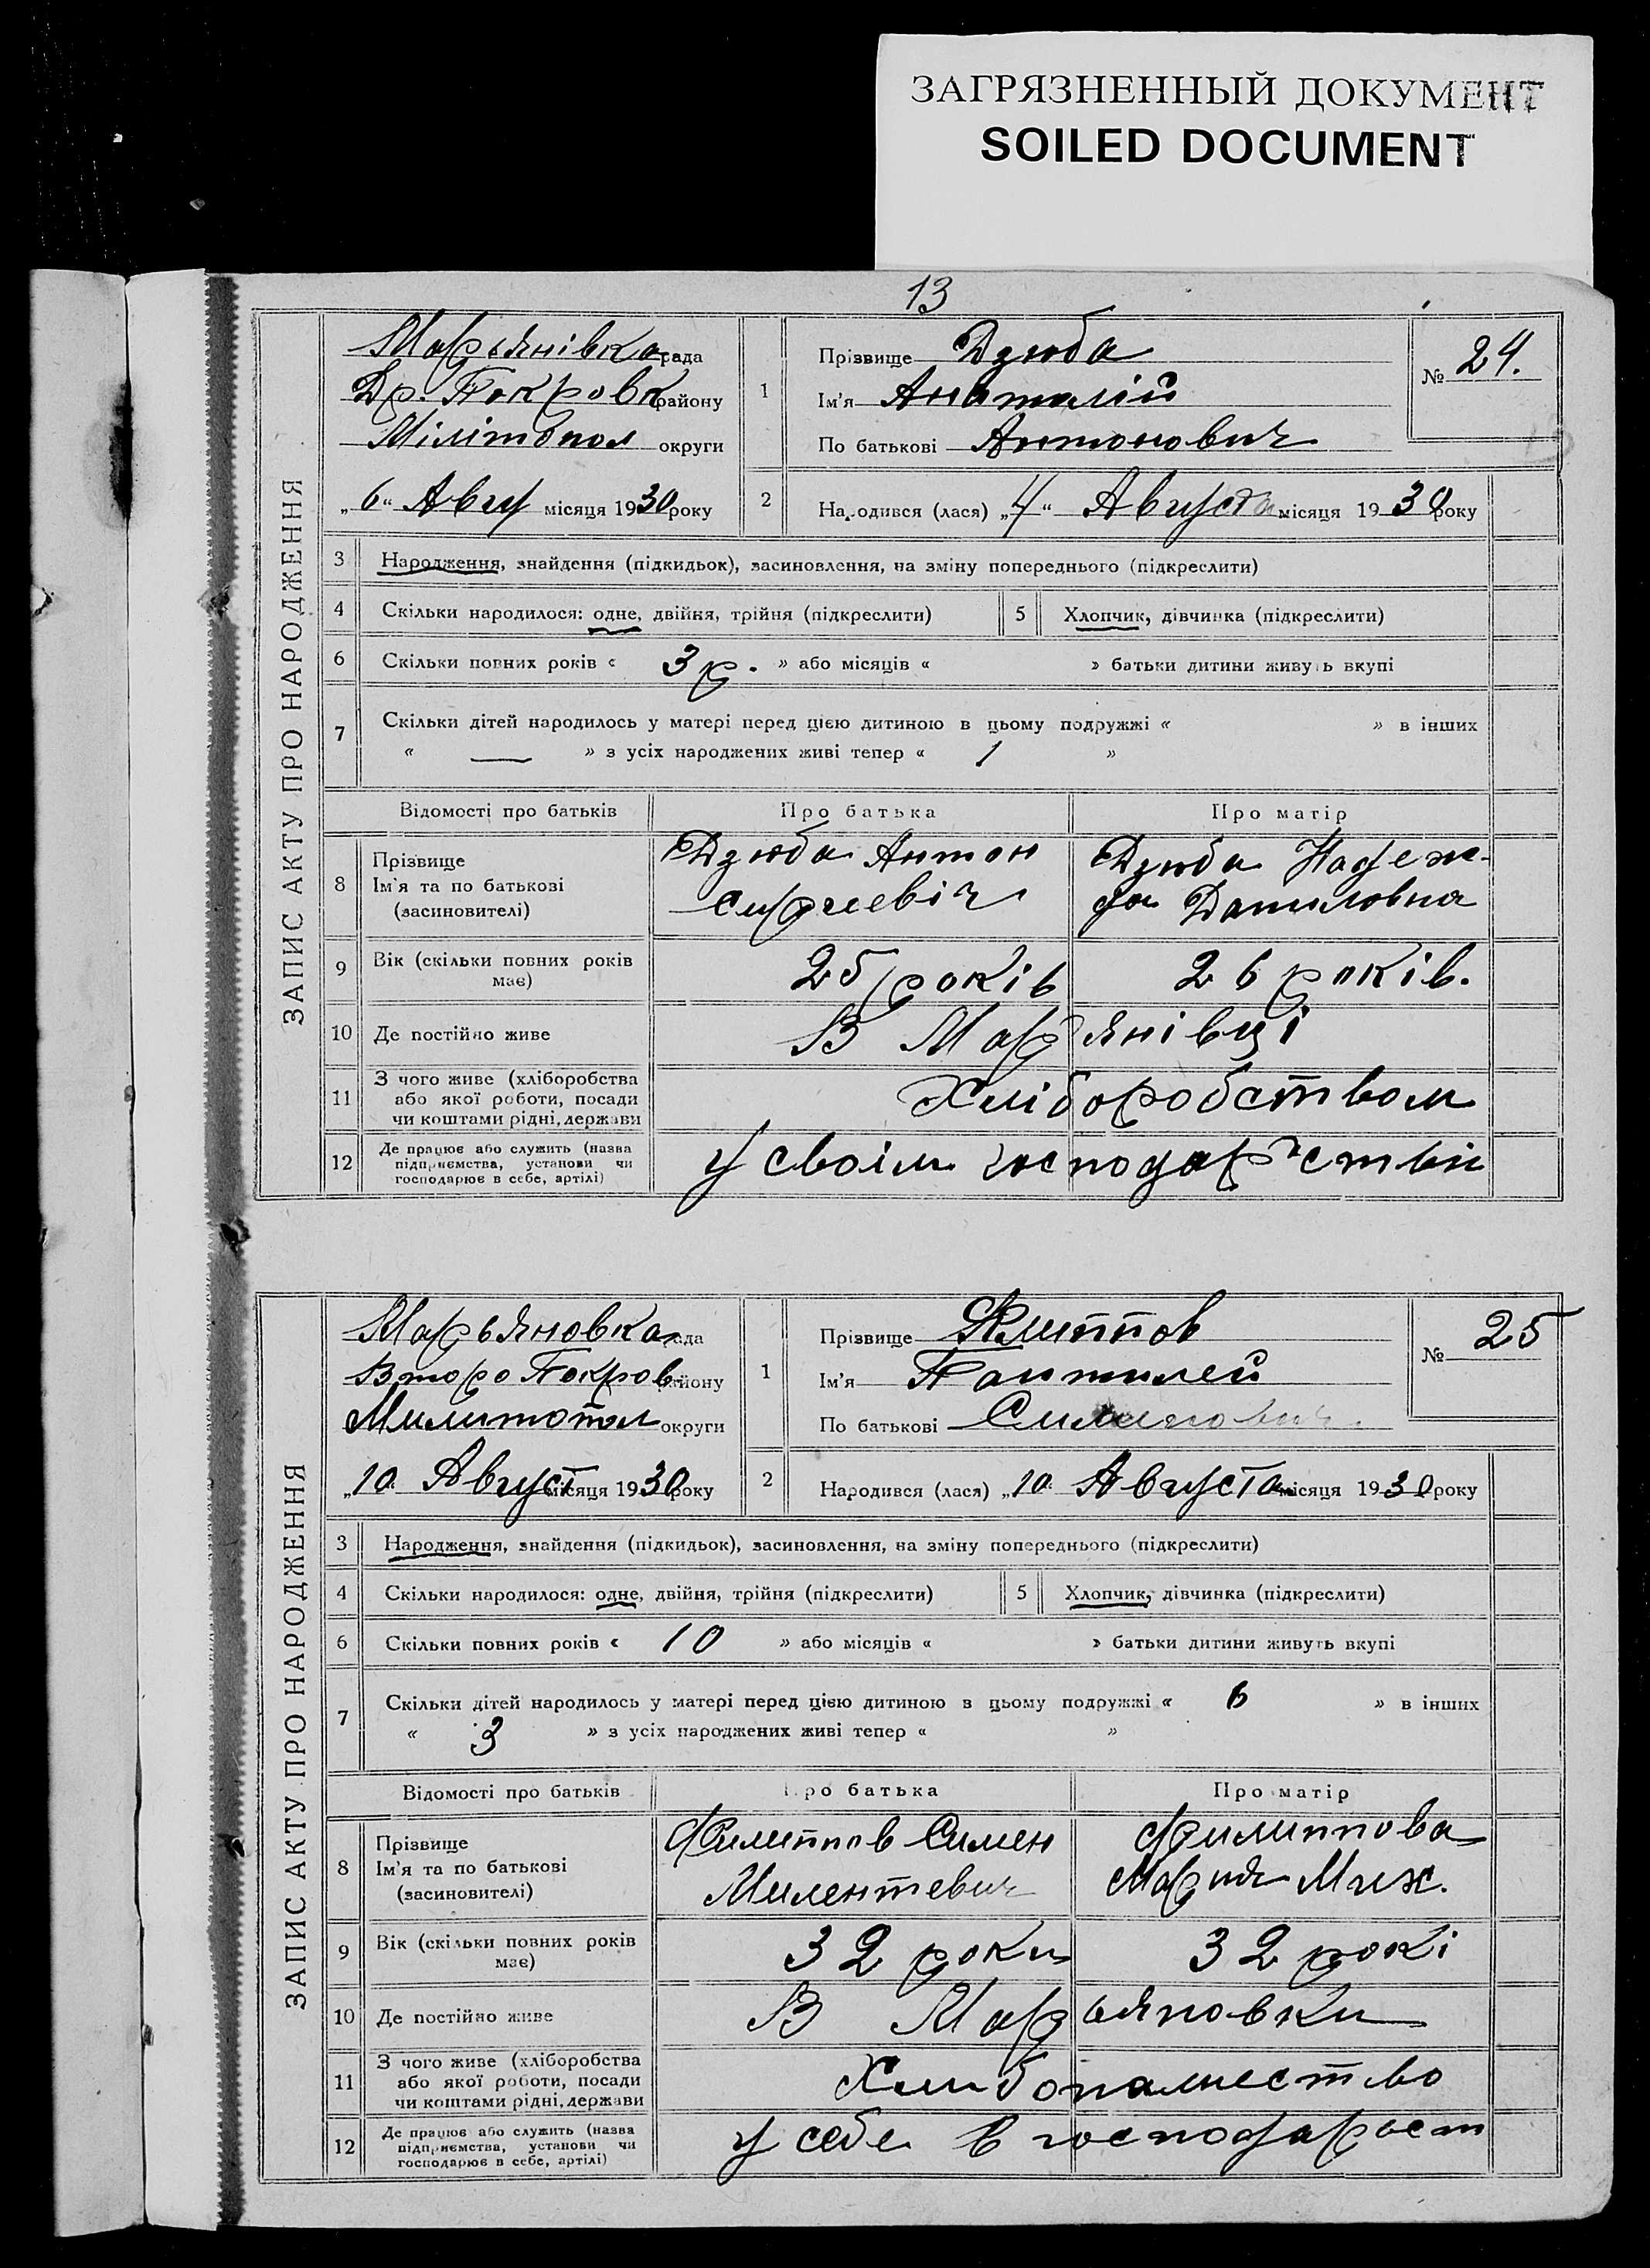 ЗАГРЯЗНЕННЫЙ ДОКУМЕНТ
SOILED DOCUMENT
13
ЗАПИС АКТУ ПРО НАРОДЖЕННЯ
Марьянівка рада
Др. Покровк району
Мілітопол округи
„6“ Авгу місяця 1930 року
1
Прізвище Дзюба
Ім'я Анатолій
По батькові Антонович
№ 24.
2
Народився (лася) „4“ Августа місяця 1930 року
3 Народження, знайдення (підкидьок), засиновлення, на зміну попереднього (підкреслити)
4 Скільки народилося: одне, двійня, трійня (підкреслити) 5 Хлопчик, дівчинка (підкреслити)
6 Скільки повних років « 3 р. » або місяців « » батьки дитини живуть вкупі
7 Скільки дітей народилось у матері перед цією дитиною в цьому подружжі « » в інших
« — » з усіх народжених живі тепер « 1 »
Відомості про батьків Про батька Про матір
8 Прізвище
Ім'я та по батькові
(засиновителі)
Дзюба Антон
Дзюба Надеж-
да Даниловна
9 Вік (скільки повних років
має)
25 років 26 років.
10 Де постійно живе В Мар'янівці
11 З чого живе (хліборобства
або якої роботи, посади
чи коштами рідні, держави
Хліборобством
12 Де працює або служить (назва
підприємства, установи чи
господарює в себе, артілі)
у своїм господарстві
ЗАПИС АКТУ ПРО НАРОДЖЕННЯ
Марьяновка рада
Второ Покров району
Милитопол округи
„10 Август місяця 1930 року
1
Прізвище Филиппов
Ім'я Пантилей
По батькові
№ 25
2
Народився (лася) „10 Августа місяця 1930 року
3 Народження, знайдення (підкидьок), засиновлення, на зміну попереднього (підкреслити)
4 Скільки народилося: одне, двійня, трійня (підкреслити) 5 Хлопчик, дівчинка (підкреслити)
6 Скільки повних років « 10 » або місяців « » батьки дитини живуть вкупі
7 Скільки дітей народилось у матері перед цією дитиною в цьому подружжі « 6 » в інших
« 3 » з усіх народжених живі тепер « »
Відомості про батьків Про батька Про матір
8 Прізвище
Ім'я та по батькові
(засиновителі)
Филиппов Симен
Милентевич
Филиппова
Мария Мих.
9 Вік (скільки повних років
має)
32 роки 32 рокі
10 Де постійно живе В Марьяновки
11 З чого живе (хліборобства
або якої роботи, посади
чи коштами рідні, держави
12 Де працює або служить (назва
підприємства, установи чи
господарює в себе, артілі)
у себе в господарьст